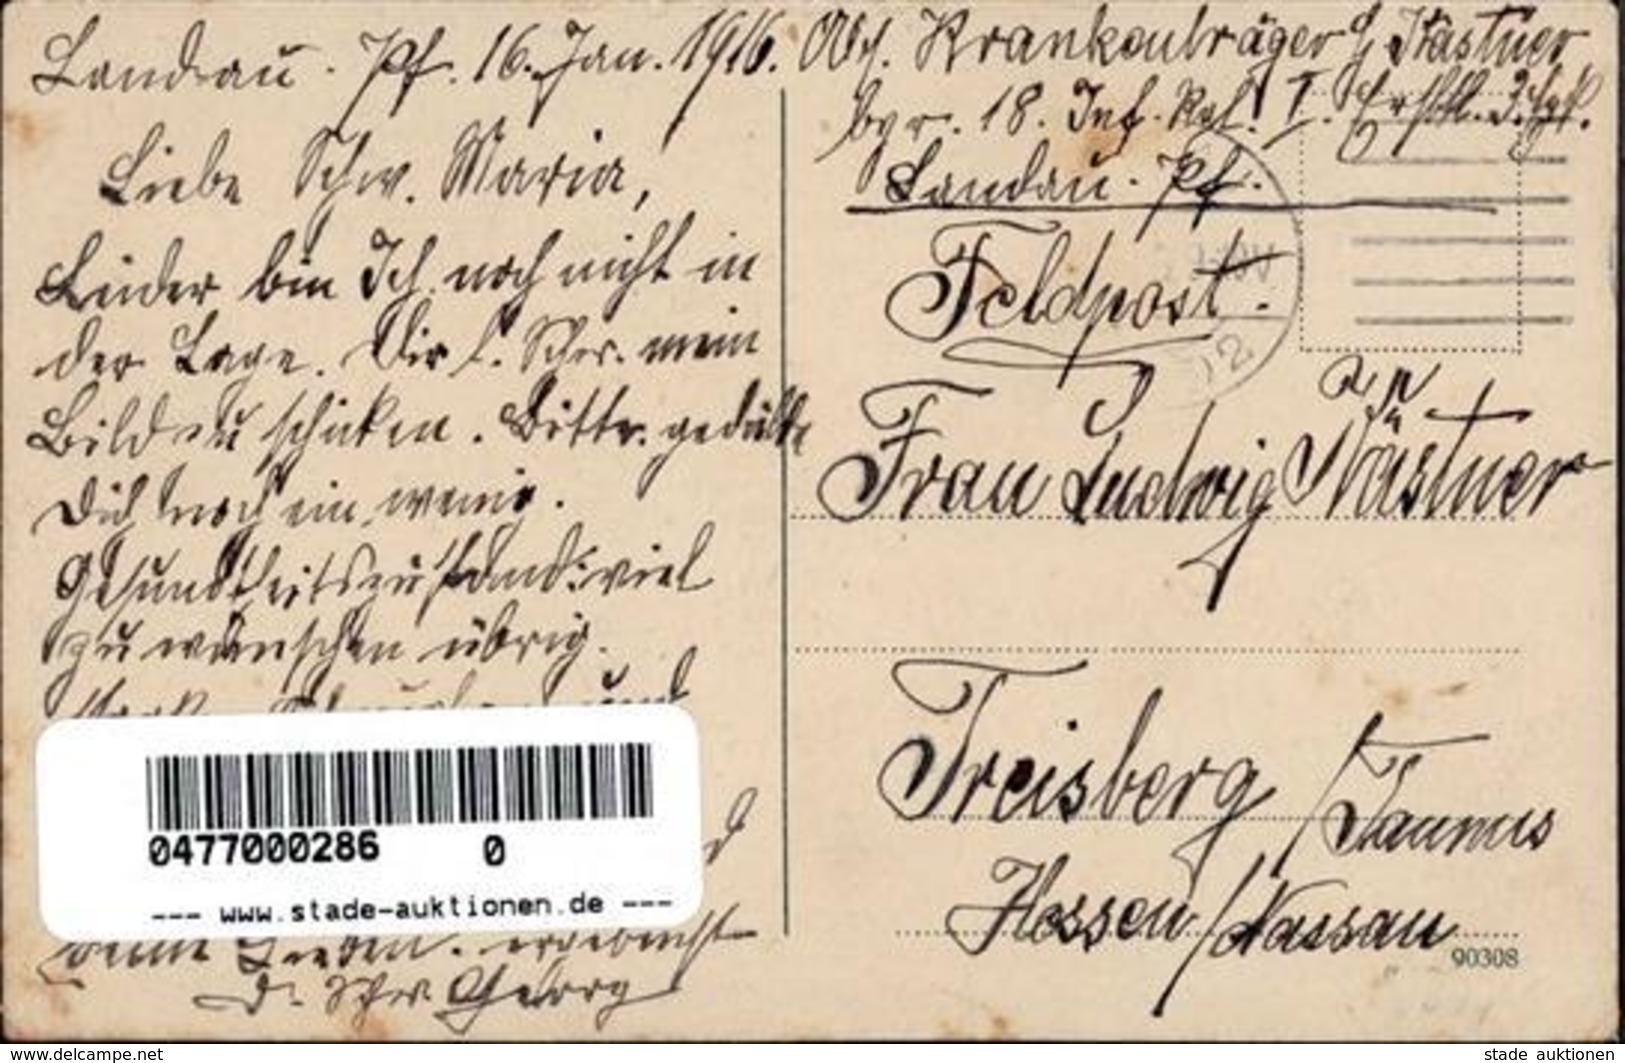 Landau. Pf. 16. Jan. 1916.
Liebe Schw. Maria,
Leider bin Ich noch nicht in
der Lage. Dir l. Schw. mein
Bild zu schicken. Bitte. gedulde
Dich noch ein wenig.
Gesundheitszustand: viel
zu wünschen übrig.
und
deine Lieben. ergebenst
d. Schw. Georg
Abs. Krankenträger G. Kästner
byr. 18. Inf. Rgt. I. 
Landau. Pf.
Feldpost.
an
Frau Ludwig Kästner
Treisberg / Taunus
Hessen / Nassau
90308
12
0477000286 0
--- www.stade-auktionen.de ---
www.delcampe.net
stade auktionen